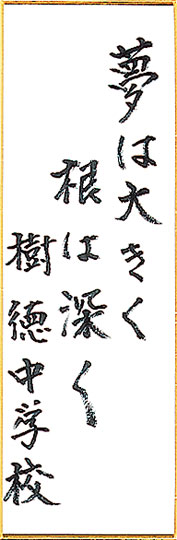 夢は大きく
根は深く
樹徳中学校